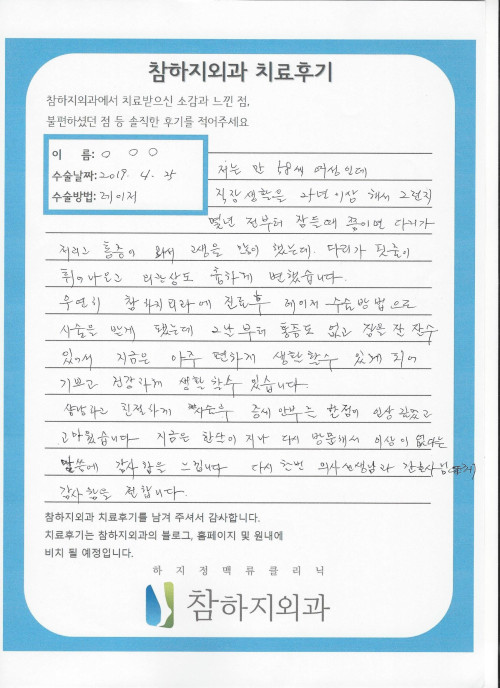 참하지외과 치료후기
참하지외과에서 치료받으신 소감과 느낀 점,
불편하셨던 점 등 솔직한 후기를 적어주세요
이 름: ○ ○ ○
수술날짜: 2019. 4. 25
수술방법: 레이저
저는 만 58세 여성인데
직장생활을 2년이상 해서 그런지
몇년 전부터 잠들때 쯤이면 다리가
저리고 통증이 와서 고생을 많이 했는데. 다리가 핏줄이
튀어나오고 외관상도 흉하게 변했습니다.
우연히 참하지외과에 진료후 레이저 수술방법으로
시술을 받게 됐는데 그날부터 통증도 없고 잠을 잘 잘수
있어서 지금은 아주 편하게 생활할수 있게 되어
기쁘고 건강하게 생활할수 있습니다.
상냥하고 친절하게 시술후 증세 안부는 한점이 인상 깊었고
고마웠습니다 지금은 한달이 지나 다시 방문해서 이상이 없다는
말씀에 감사함을 느낍니다 다시한번 의사선생님과 간호사님
감사함을 전합니다.
참하지외과 치료후기를 남겨 주셔서 감사합니다.
치료후기는 참하지외과의 블로그, 홈페이지 및 원내에
비치 될 예정입니다.
하 지 정 맥 류 클 리 닉
참하지외과